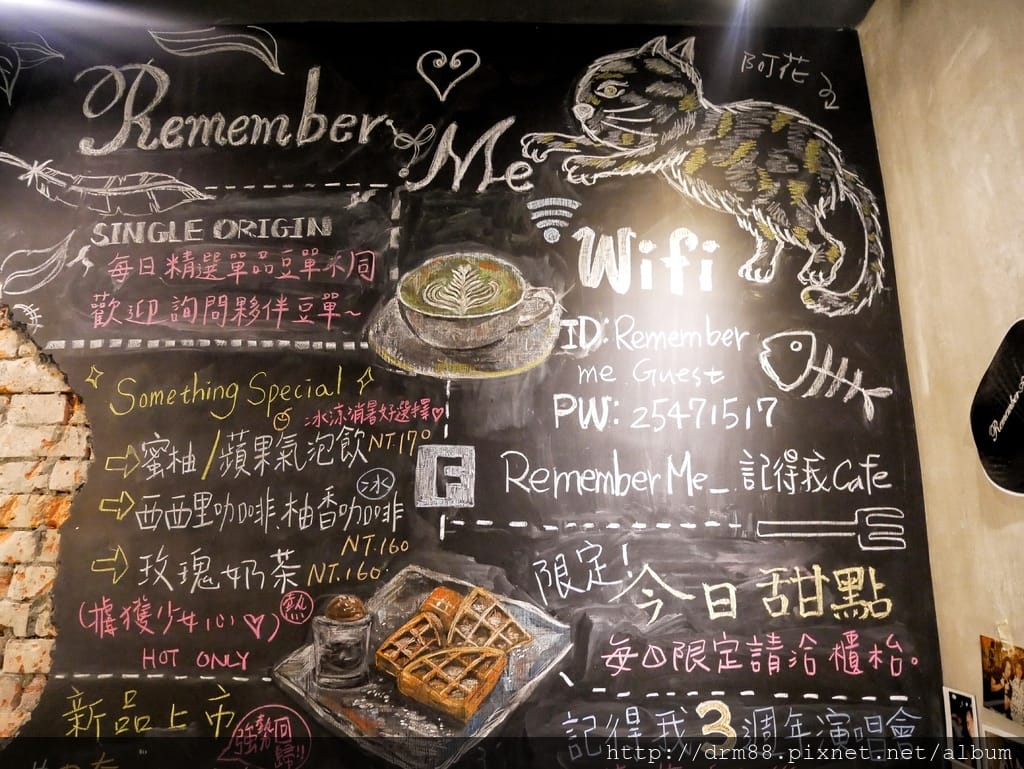 Remember
Me
阿花
SINGLE ORIGIN
每日精選單品豆單不同
歡迎詢問夥伴豆單~
Wifi
ID: Remember
me Guest
PW: 25471517
F RememberMe_記得我Cafe
Something Special
冰涼消暑好選擇♡
蜜柚/蘋果氣泡飲 NT.170
西西里咖啡.柚香咖啡 冰
NT.160
玫瑰奶茶 NT.160.
(擄獲少女心♡) 熱
HOT ONLY
限定!
今日甜點
每日限定請洽櫃枱。
新品上市
強勢回歸!!
記得我3週年演唱會
http://drm88.pixnet.net/album